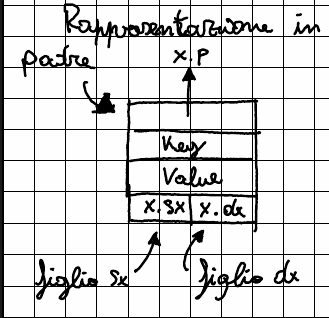 Rappresentazione in
x.p
padre
Key
Value
x.sx x.dx
figlio sx figlio dx